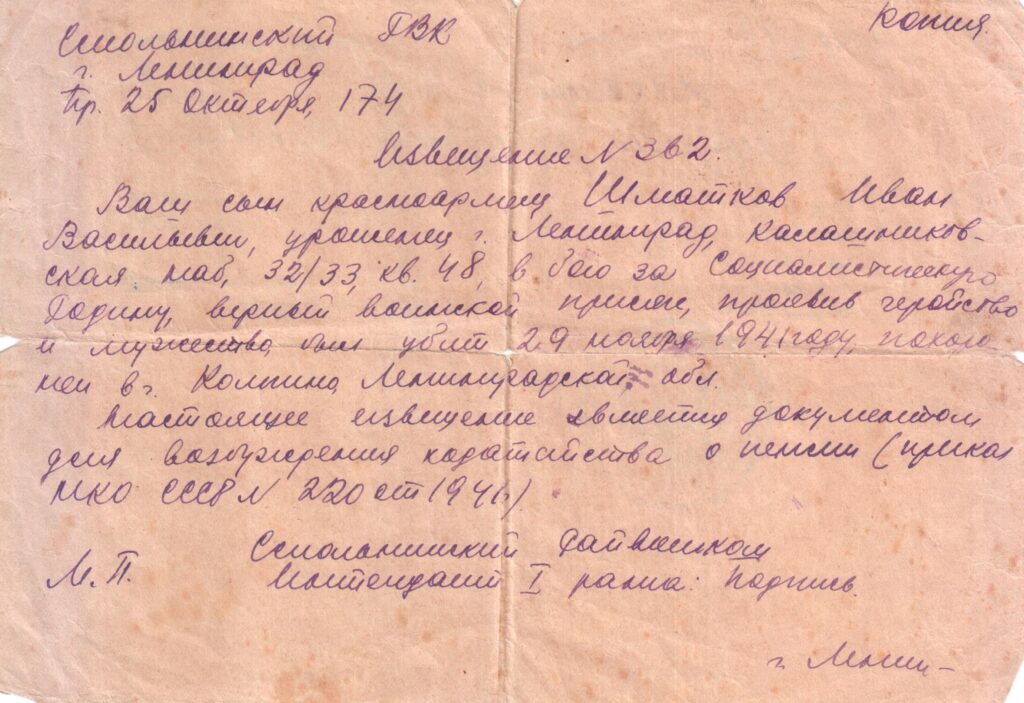 Копия.
Смольнинский ГВК
г. Ленинград
Пр. 25 Октября, 174
Извещение N 362.
Ваш сын красноармеец Шматков Иван
Васильевич, уроженец г. Ленинград, Калашников-
ская наб, 32/33, кв. 48, в бою за Социалистическую
Родину, верный воинской присяге, проявив геройство
и мужество, был убит 29 ноября 1941 году, похоро
нен в г. Колпино, Ленинградской обл.
Настоящее извещение является документом
для возбуждения ходатайства о пенсии (приказ
НКО СССР N 220 от 1941г)
Смольнинский Райвоенком
М.П. Интендант I ранга: Подпись.
г. Ленин-